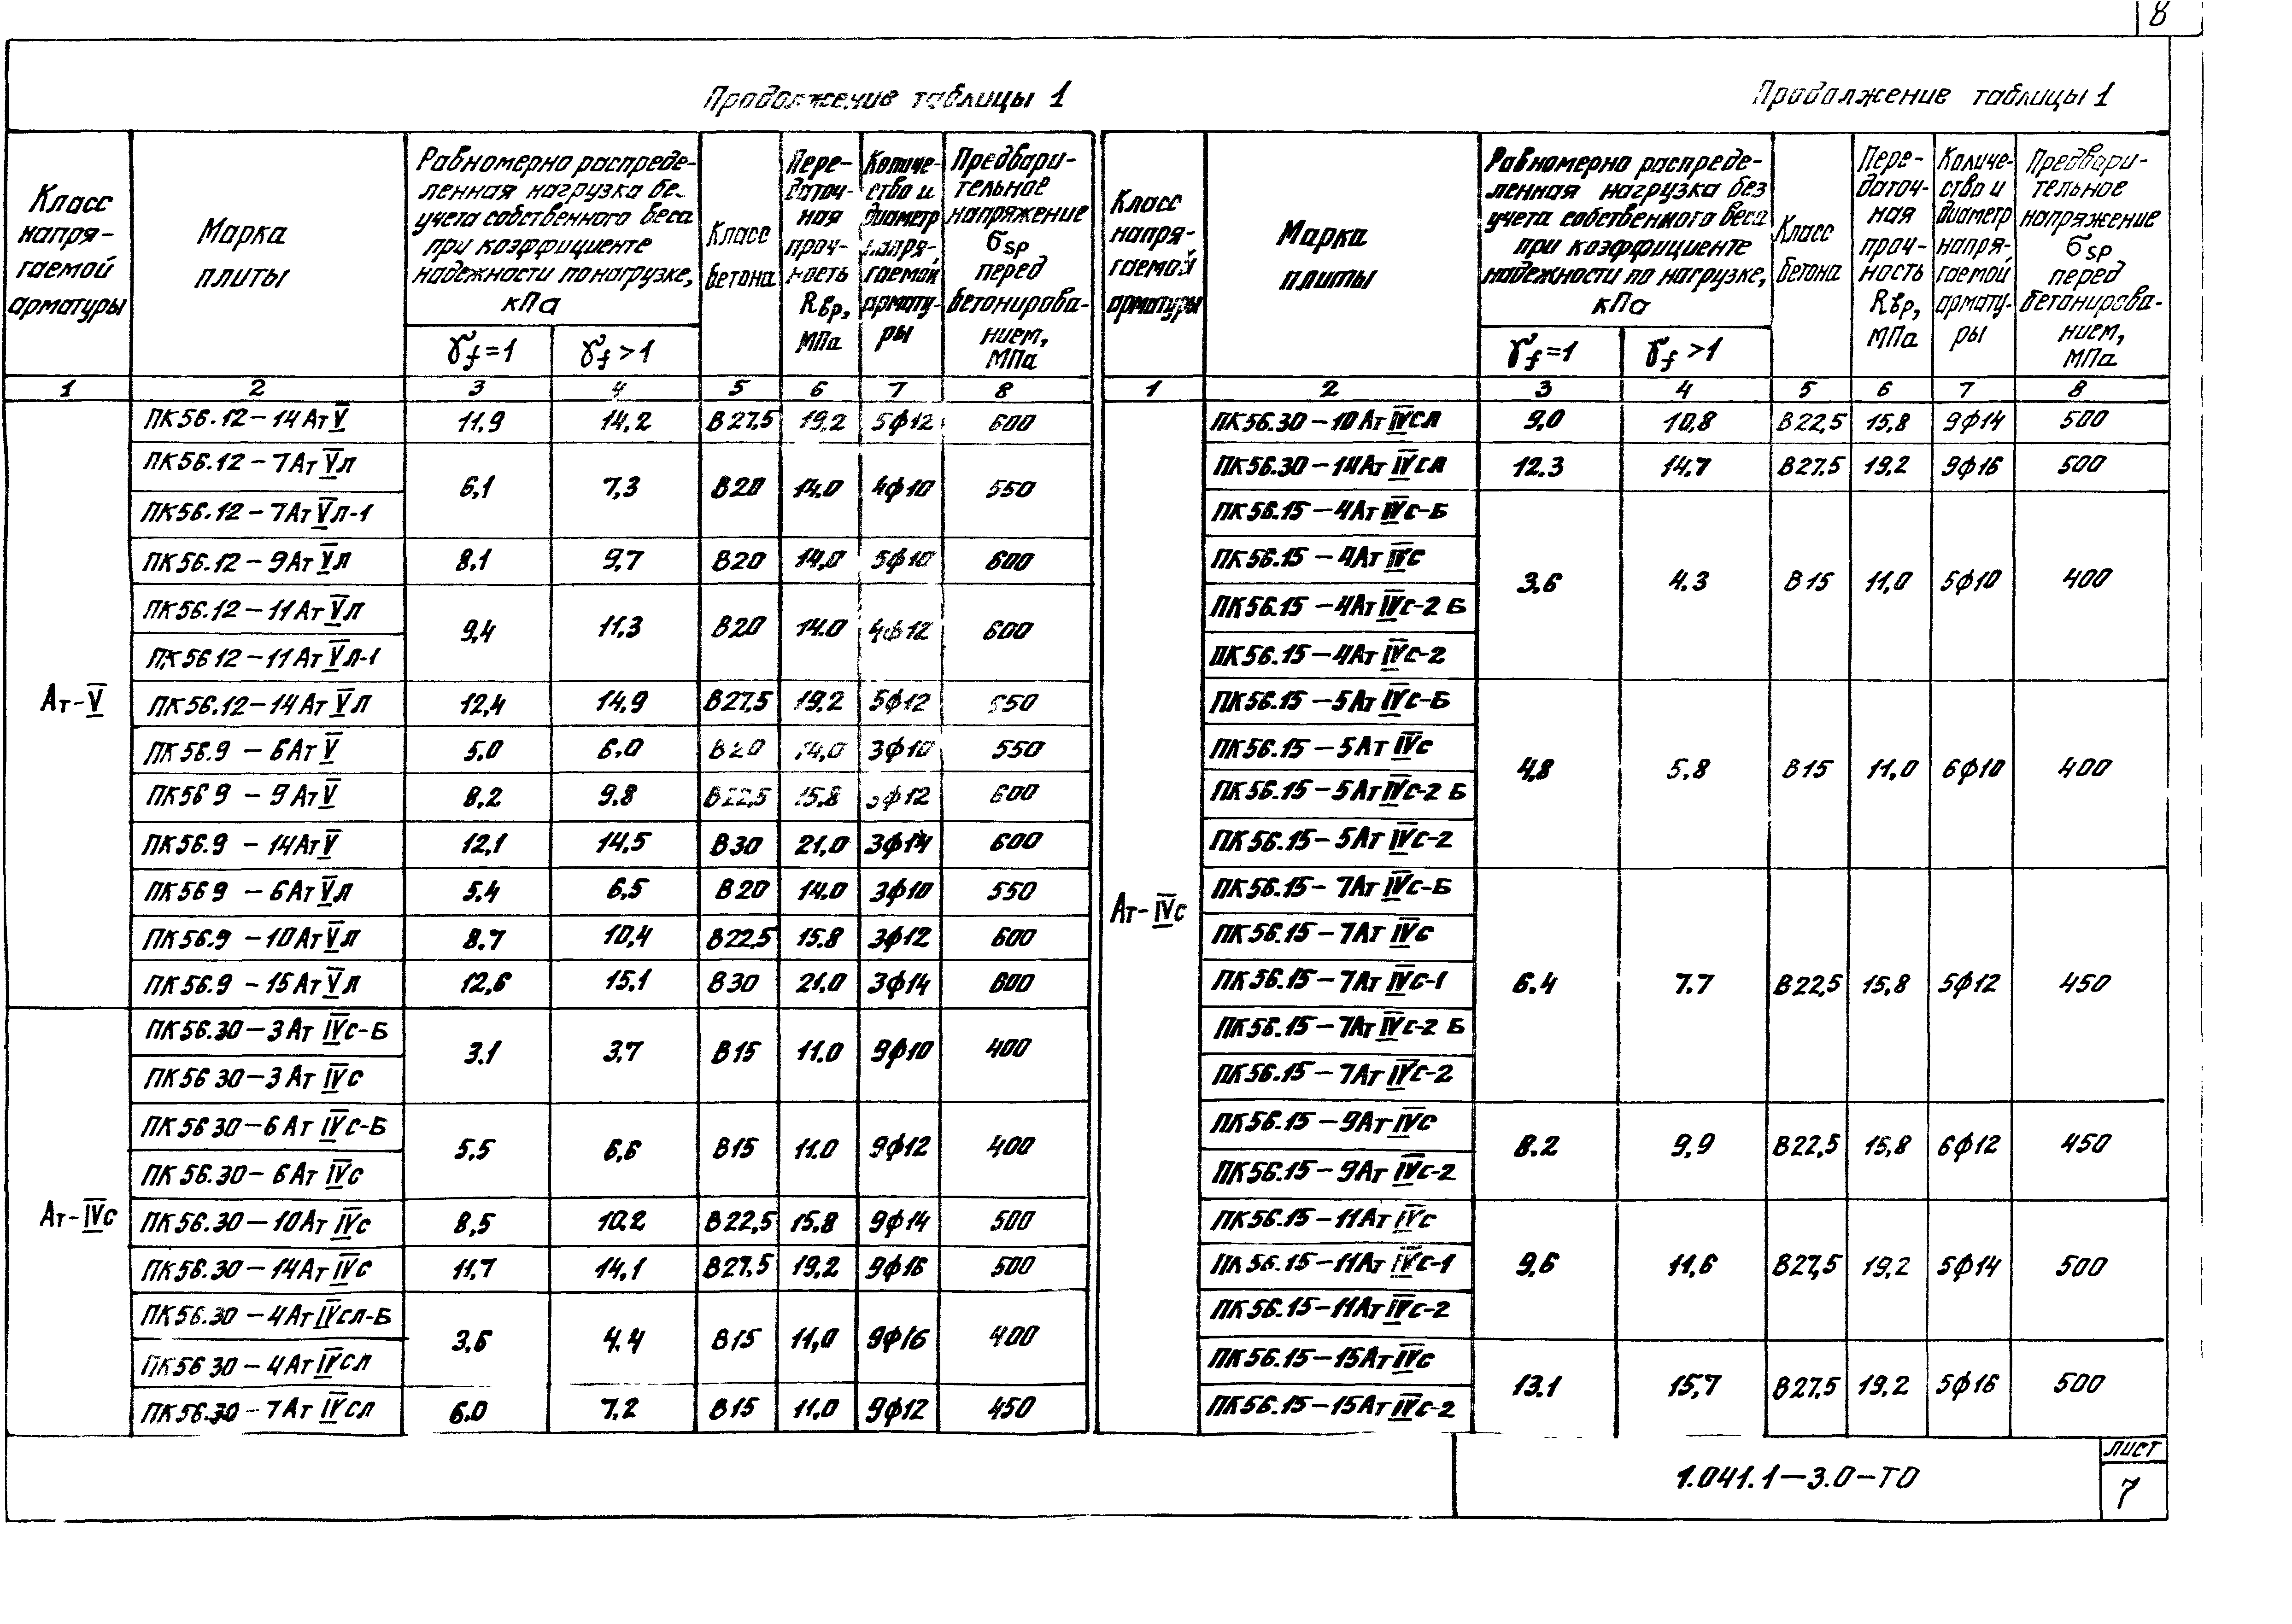 8
Продолжение таблицы 1
Класс напря- гаемой арматуры
Марка плиты
Равномерно распреде- ленная нагрузка бе- учета собственного веса при коэффициенте надежности по нагрузке, кПа
Класс бетона
Пере- даточ- ная проч- ность Rвр, МПа
Количе- ство и диаметр напря- гаемой армату- ры
Предвари- тельное напряжение σsp перед бетонирова- нием, МПа
γf=1 γf>1
1 2 3 4 5 6 7 8
Ат-V
ПК56.12-14АтV 11,9 14,2 В27,5 19,2 5ф12 600
ПК56.12-7АтVл 6,1 7,3 В20 14,0 4ф10 550
ПК56.12-7АтVл-1
ПК56.12-9АтVл 8.1 9,7 В20 14,0 5ф10 600
ПК56.12-11АтVл 9,4 11,3 В20 14.0 4ф12 600
ПК56 12-11АтVл-1
ПК56.12-14АтVл 12,4 14,9 В27,5 19,2 5ф12 650
ПК56.9 - 6АтV 5,0 6,0 В20 14,0 3ф10 550
ПК56 9 - 9АтV 8,2 9.8 В22,5 15,8 3ф12 600
ПК56.9 - 14АтV 12,1 14,5 В30 21,0 3ф14 600
ПК56 9 - 6АтVл 5,4 6,5 В20 14,0 3ф10 550
ПК56.9 - 10АтVл 8.7 10,4 В22,5 15.8 3ф12 600
ПК56.9 - 15АтVл 12,6 15.1 В30 21,0 3ф14 600
Ат-IVс
ПК56.30-3АтIVс-Б 3.1 3,7 В15 11.0 9ф10 400
ПК56 30-3АтIVс
ПК56 30-6АтIVс-Б 5,5 6,6 В15 11.0 9ф12 400
ПК56.30-6АтIVс
ПК56.30-10АтIVс 8,5 10,2 В22,5 15.8 9ф14 500
ПК56.30-14АтIVс 11,7 14,1 В27,5 19,2 9ф16 500
ПК56.30-4АтIVсл-Б 3,6 4.4 В15 11,0 9ф16 400
ПК56 30-4АтIVсл
ПК56.30-7АтIVсл 6.0 7,2 В15 11,0 9ф12 450
Продолжение таблицы 1
Класс напря- гаемой арматуры
Марка плиты
Равномерно распреде- ленная нагрузка без учета собственного веса при коэффициенте надежности по нагрузке, кПа
Класс бетона
Пере- даточ- ная проч- ность Rвр, МПа
Количе- ство и диаметр напря- гаемой армату- ры
Предвари- тельное напряжение σsp перед бетонирова- нием, МПа
γf=1 γf>1
1 2 3 4 5 6 7 8
Ат-IVс
ПК56.30-10АтIVсл 9,0 10,8 В22,5 15,8 9ф14 500
ПК56.30-14АтIVсл 12.3 14,7 В27,5 19,2 9ф16 500
ПК56.15-4АтIVс-Б 3,6 4.3 В15 11,0 5ф10 400
ПК56.15-4АтIVс
ПК56.15-4АтIVс-2 Б
ПК56.15-4АтIVс-2
ПК56.15-5АтIVс-Б 4,8 5,8 В15 11,0 6ф10 400
ПК56.15-5АтIVс
ПК56.15-5АтIVс-2 Б
ПК56.15-5АтIVс-2
ПК56.15-7АтIVс-Б 6.4 7.7 В22,5 15,8 5ф12 450
ПК56.15-7АтIVс
ПК56.15-7АтIVс-1
ПК56.15-7АтIVс-2 Б
ПК56.15-7АтIVс-2
ПК56.15-9АтIVс 8.2 9,9 В22,5 15,8 6ф12 450
ПК56.15-9АтIVс-2
ПК56.15-11АтIVс 9,6 11,6 В27,5 19,2 5ф14 500
ПК56.15-11АтIVс-1
ПК56.15-11АтIVс-2
ПК56.15-15АтIVс 13,1 15,7 В27,5 19,2 5ф16 500
ПК56.15-15АтIVс-2
1.041.1-3.0-ТО
лист
7